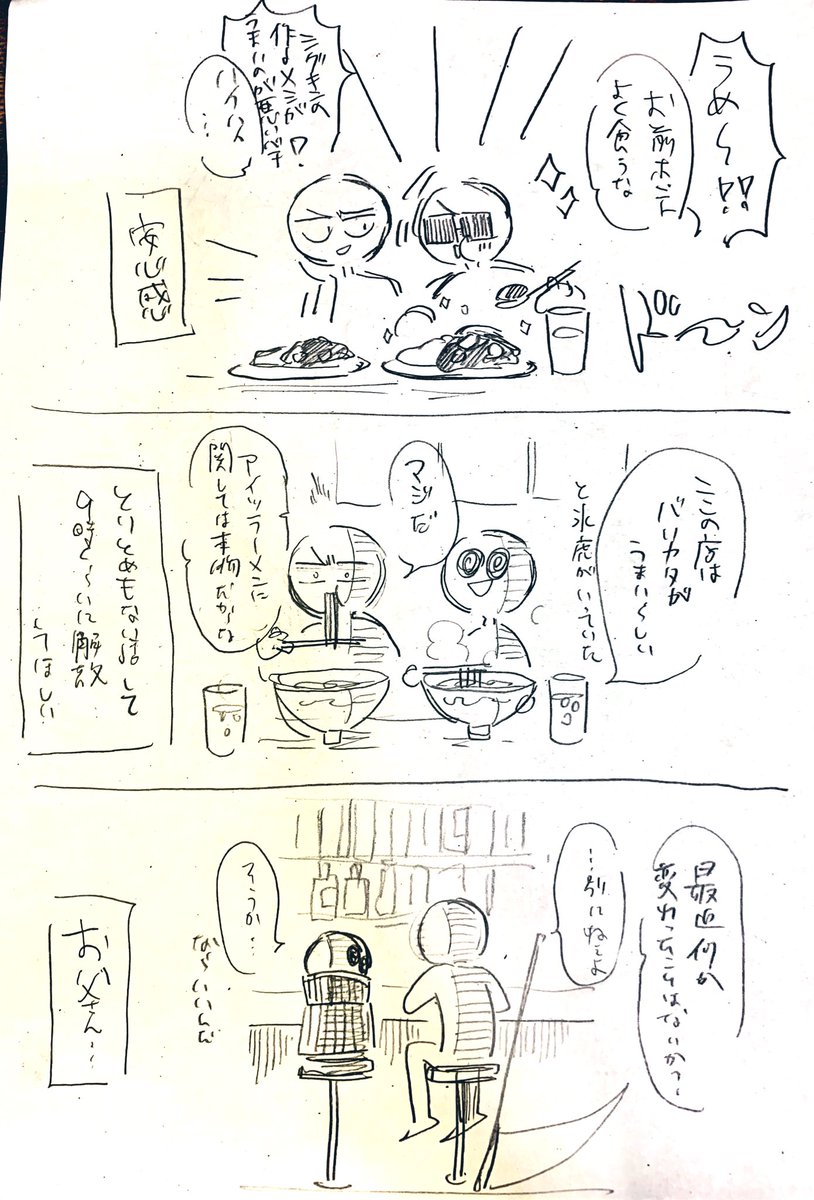 うめ〜!!
お前ホント
よく食うな
ドーン
作るメシが
うまいのが悪い
ハイハイ
…
安心感
ここの店は
バリカタが
うまいらしい
と氷虎がいっていた
マジだ
アイツラーメンに
関しては本物だからな
とりとめもない話して
9時くらいに解散
してほしい
最近何か
変わったことはないか?
…別にねぇよ
そうか…
ならいいんだ
お父さん…